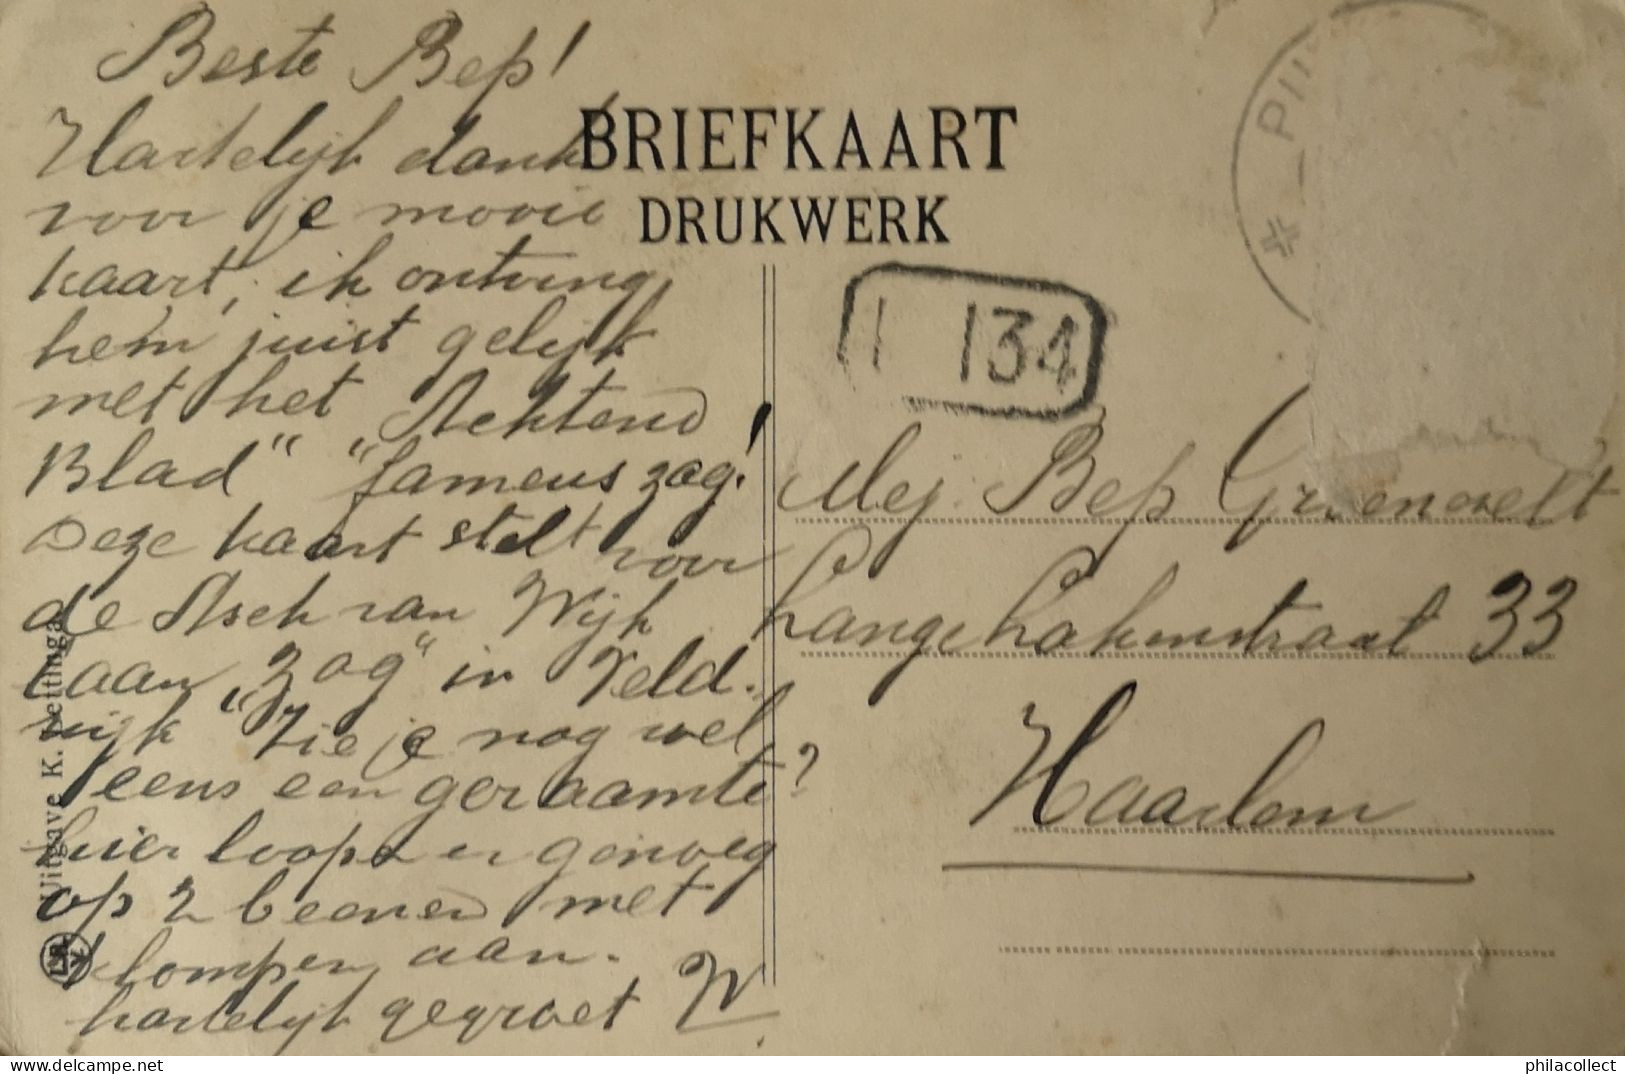 Beste Bep!
Hartelijk dank
voor je mooie
kaart, ik ontving
hem juist gelijk
met het Achtend
Blad" "fameus zag!
Deze kaart stelt voor
de van Wijk
Laan "Zog" in Veld-
wijk" Zie je nog wel
eens een geraamte?
hier loopen er genoeg
op 2 beenen met
klompen aan.
hartelijk gegroet W
BRIEFKAART
DRUKWERK
1 134
Mej. Bep Groenevelt
Lange Lakenstraat 33
Haarlem
Uitgave K.
philacollect